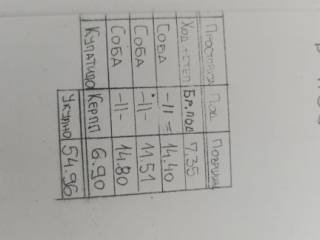 Просторија Под Површина
Ход.+степ Бр.под 7.35
Соба -||- 14.40
Соба -||- 11.51
Соба -||- 14.80
Купатило Керпл 6.90
Укупно 54.96